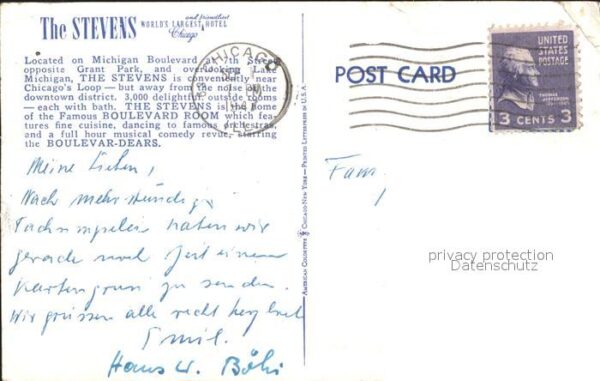 The STEVENS
and friendliest
WORLD'S LARGEST HOTEL
Chicago
Located on Michigan Boulevard at 7th Street
opposite Grant Park, and overlooking Lake
Michigan, THE STEVENS is conveniently near
Chicago's Loop — but away from the noise of the
downtown district. 3,000 delightful outside rooms
— each with bath. THE STEVENS is the home
of the Famous BOULEVARD ROOM which fea-
tures fine cuisine, dancing to famous orchestras,
and a full hour musical comedy revue, starring
the BOULEVAR-DEARS.
CHICAGO
ILL.
POST CARD
UNITED
STATES
POSTAGE
THOMAS
JEFFERSON
3 CENTS 3
AMERICAN COLORTYPE CHICAGO-NEW YORK — PRINTED LETTERPRESS IN U.S.A.
Meine Lieben,
Nach mehrstündig
haben wir
gerade noch Zeit einen
Kartengruss zu senden.
Wir grüssen alle recht herzlich
Emil.
Hans W. Böhi
Fam.
privacy protection
Datenschutz